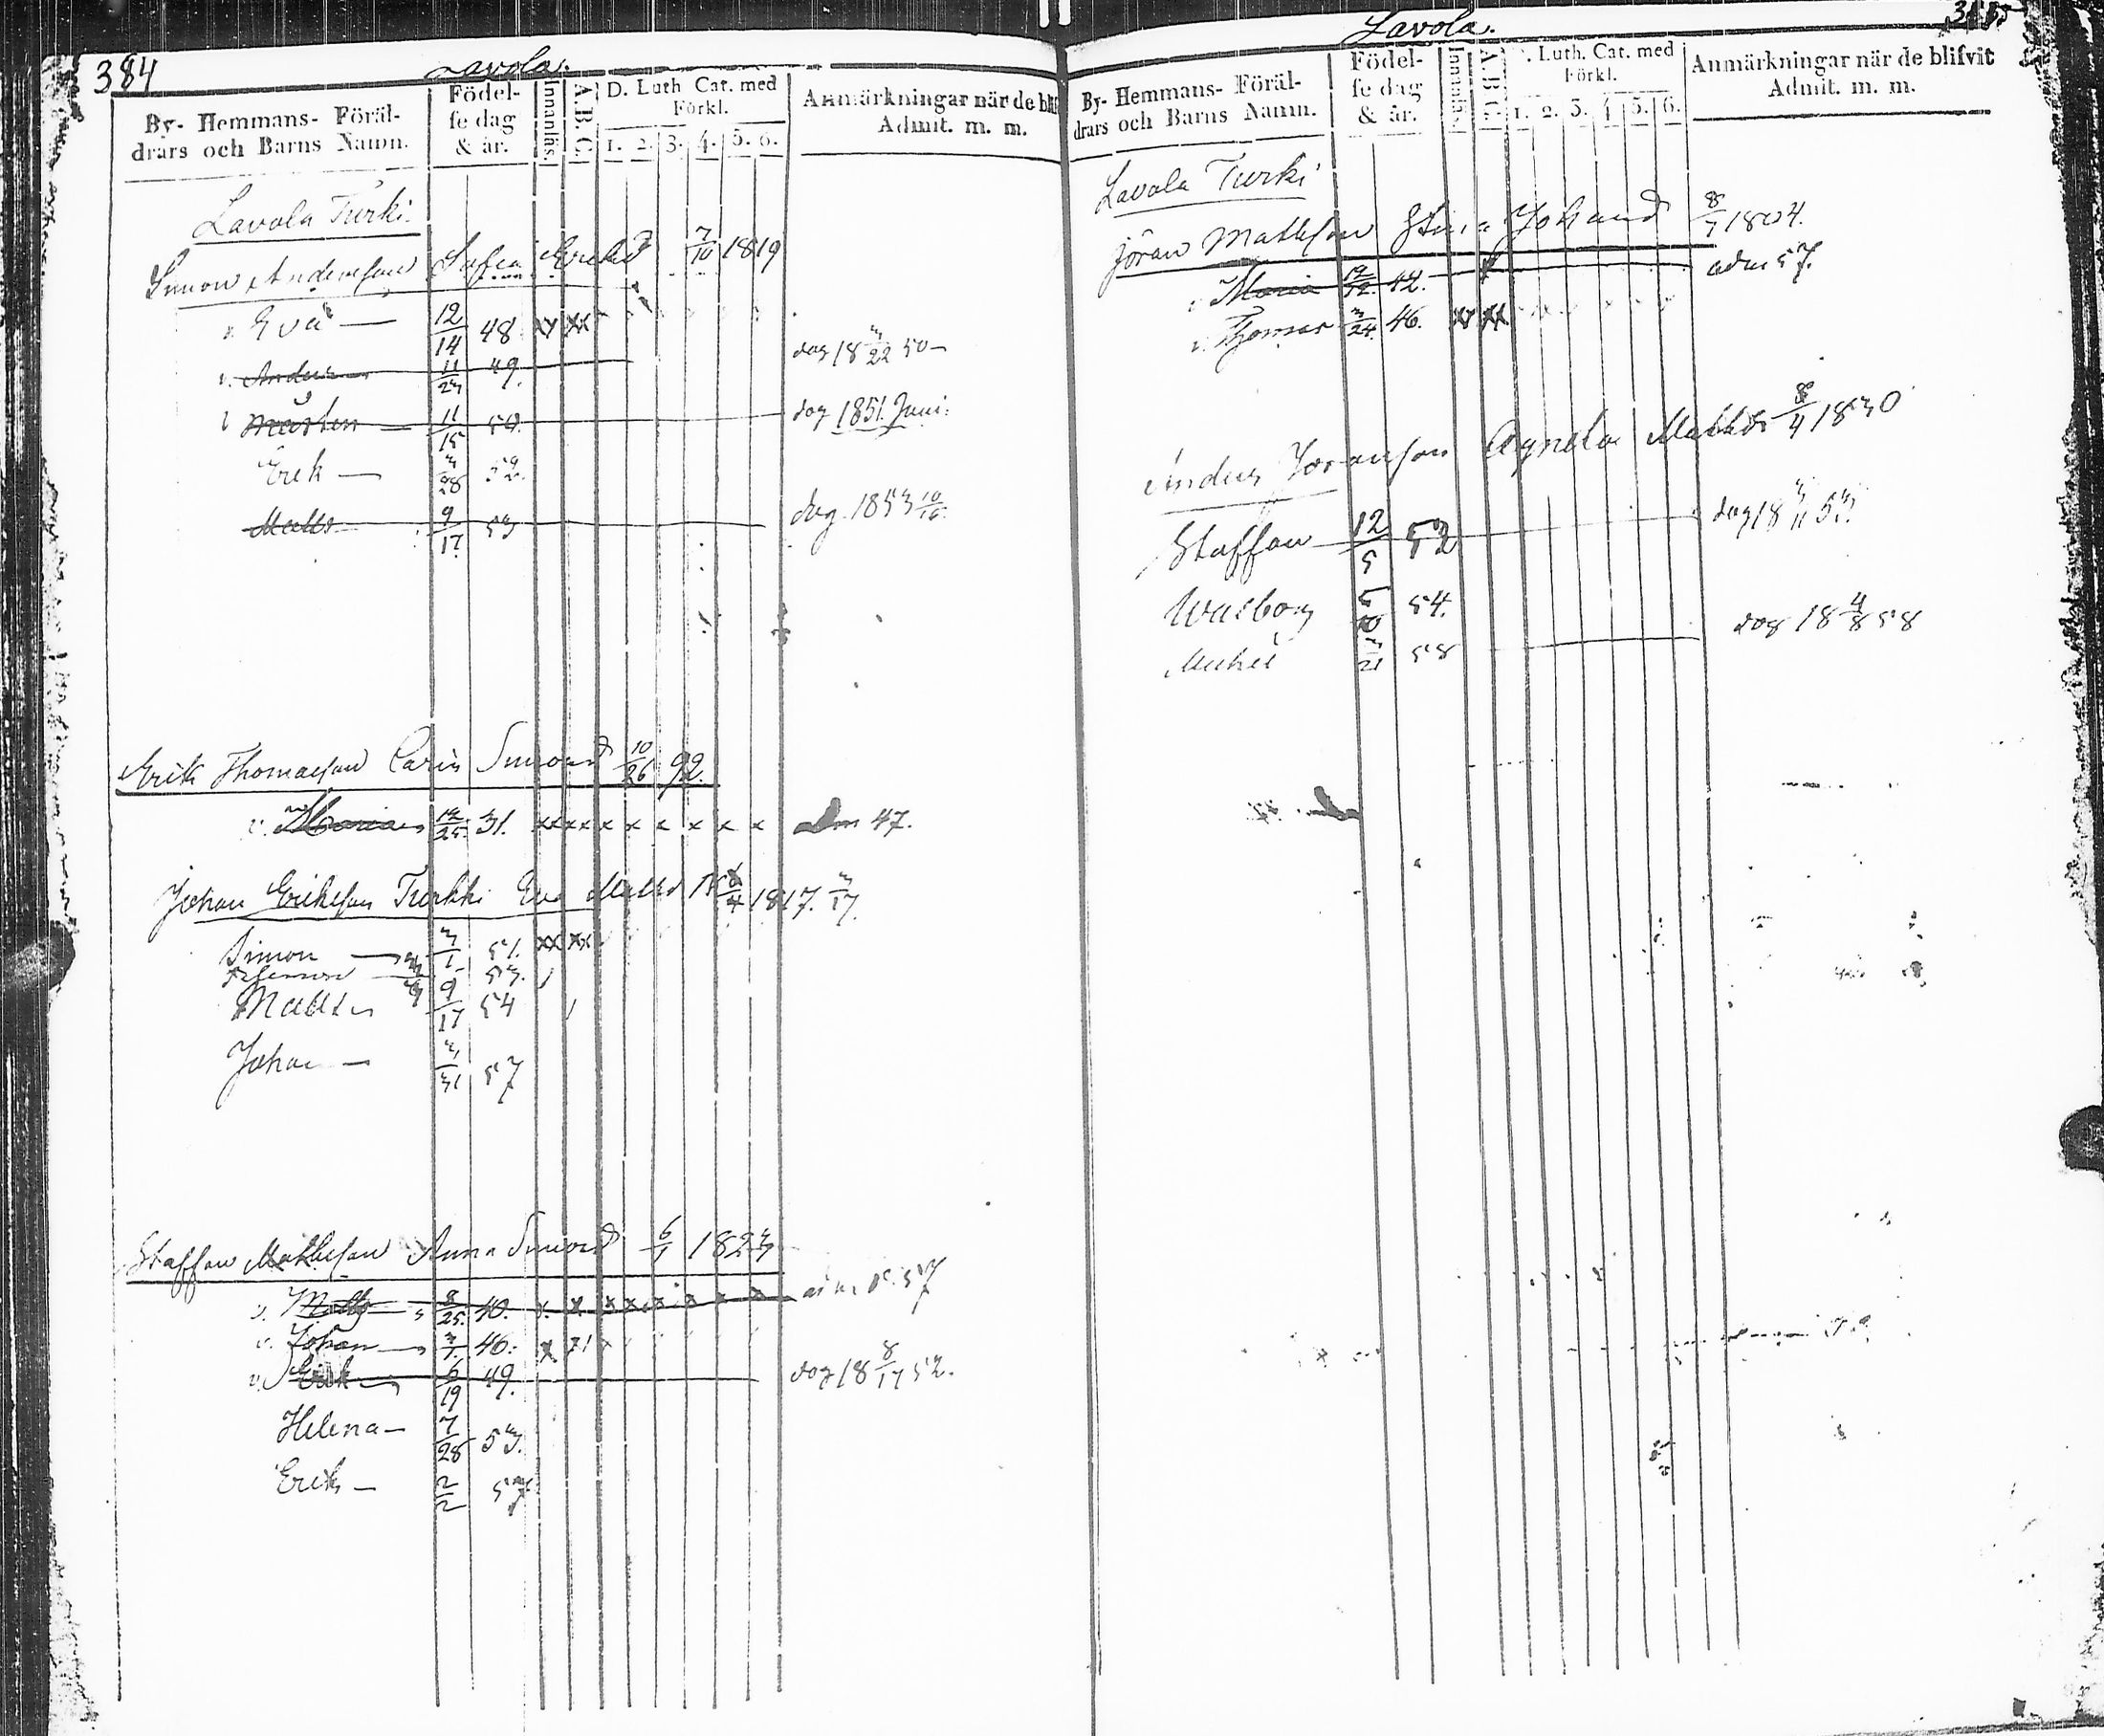 384
Lavola.
By- Hemmans- Föräl-
drars och Barns Namn.
Födel-
se dag
& år.
Innanläs.
A.B.C.
D. Luth Cat. med
Förkl.
1. 2. 3. 4. 5. 6.
Anmärkningar när de bli
Admit. m. m.
Lavola Turki.
Simon Andersson Sofia Ericsd 7/10 1819
Eva — 12/14 48 xx xx
Anders 11/23 49. dog 18 3/22 50
Mårten 11/15 50. dog 1851 Juni.
Erik — 3/28 52.
Matts 9/17 53 dog. 1853 10/16.
Erik Thomasson Carin Simonsd 10/26 92.
Maria 12/25 31. xx xx x x x x x x adm 47.
Johan Eriksson Turkki Eva Mattsd 1817.
Simon 3/1 51. xx xx
Matts 9/17 54
Johan — 3/31 57
Staffan Mathsson Anna Simonsd 6/1 1823
Matts 8/25 40. x x x x x x x x
Johan 46.
Erik 6/19 49. dog 18 8/17 52.
Helena — 7/28 53.
Erik — 2/2 57
Lavola.
By- Hemmans- Föräl-
drars och Barns Namn.
Födel-
se dag
& år.
Innanläs.
A.B.C.
Luth. Cat. med
Förkl.
1. 2. 3. 4 5. 6.
Anmärkningar när de blifvit
Admit. m. m.
Lavola Turki
Jöran Mathsson Stina Johansd 8/7 1804.
Maria 42. adm 57.
Thomas 3/24 46. xx xx
Anders Joransson Agneta Mattsd 8/4 1830
Staffan 12/5 52 dog 18 3/11 53.
Walborg 54.
Mickel 58 dog 18 4/8 58